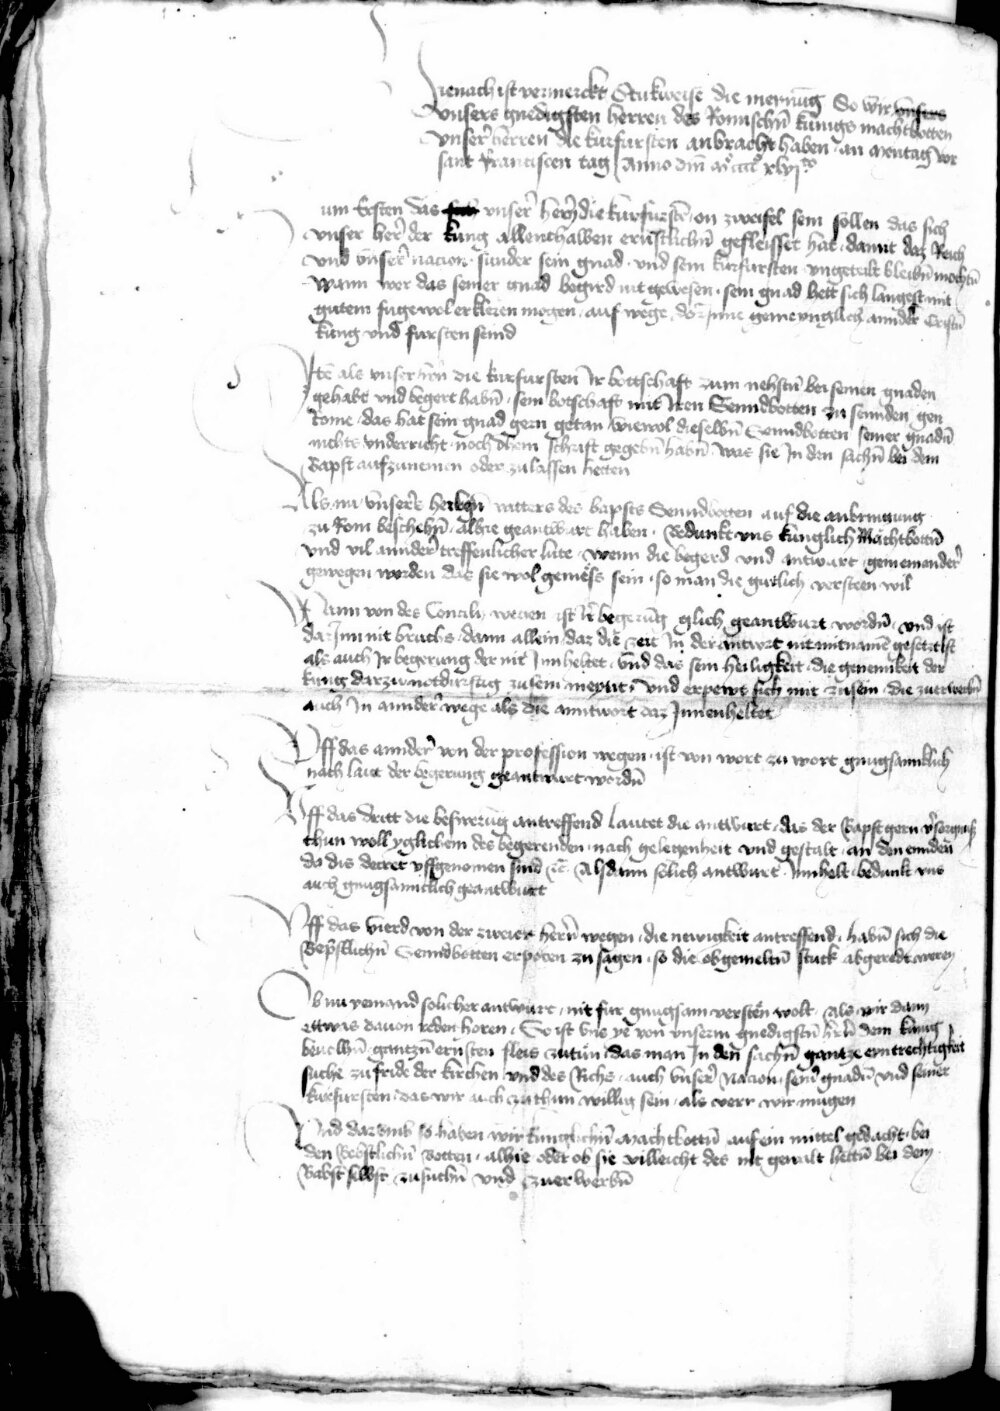 Hienach ist vermerckt Stukweise die meynung So wir unsers
unsers gnedigsten herren des Romischn kunigs machtbotten
unserr herren die kurfursten anbracht haben · an mentag vor
sant Franciscen tag Anno dm̄ mͦccccͦ xlvjto
um Ersten das unserr herrn die kurfurstn on zweifel sein sollen das sich
unser herr der kung allenthalben ernstlichn gefleisset hat · damit daz Reich
und unserr nacion · sunder sein gnad · und sein kurfursten ungeteilt bleibn mochtn
wann wer das seiner gnad begird nit gewesen · sein gnad hett sich langest mit
gutem fuge wol ercleren mogen · auf wege · dorinne gemeynglich annder Cristn
kung und fursten seind
Ite als unser hrn die kurfursten Ir bottschaft zum nehstn bei seinen gnaden
gehabt und begert habn · sein botschaft mit Iren Senndbotten zu sennden gen
Rome · das hat sein gnad gern getan wiewol dieselbn Senndbotten seiner gnadn
nichts underricht noch dhein schrift gegebn habn was sie In den sachn bei dem
Bapst aufzunemen oder zulassen hetten
Als nu unsers heiligen vatters des bapsts Senndbotten auf die anbringung
zu Rom beschehn · alhie geantwurt haben · Bedunkt uns kunglich Machtbottn
und vil annder treffenlicher lute · wenn die begerd und antwurt gen einander
gewegen werden das sie wol gemess sein · so man die gutlich versteen wil
Wann von des Concili wegen ist Ir begerung glich geantwurt wordn · und ist
darInn nit bruchs · dann allein · daz die zeit In der antwort nit mit name gesetzt ist
als auch Ir begerung der nit Innheltet · und das sein heiligkeit · die gegenwikeit der
kung darzu notdurftig zu sein meynt · und erpewt sich mit zusein · die zuerwerbn
auch In annder wege als die anntwort daz Innenheltet
Uff das annder von der profession wegen · ist von wort zu wort gnugsamklich
nach laut der begerung geantwurt wordn
Uff das dritt die beswerung antreffend Lautet die antwurt · das der Bapst gern
thun woll yglichem des begerenden · nach gelegenheit und gestalt · an den ennden
do dis decret uffgenomen sind &c Als dann solich antwurt Innhelt · bedunkt uns
auch gnugsamclich geantwurt
Uff das vierd von der zweier herrn wegen · die newigkeit antreffend · habn sich die
Bepstlichn Senndbotten erpoten zu sagen · so die obgemeltn stuck abgeredt weren
Ob nu yemand solicher antwurt · nit fur gnugsam versten wolt · als wir dann
ettwas davon reden horen · So ist uns ye von unserm gnedigstn hrn dem kung
bevelhn · gantzn ernsten fleis zutun · das man In den sachn gantze eyntrechtigkeit
suche zu fride der kirchen · und des Richs · auch unserr Nacion · seinr gnadn und seiner
kurfursten · das wir auch zuthun willig sein · als verr wir mugen
Und darumb so haben wir kunglichn machtbottn auf ein mittel gedacht · bei
den Bebstlichn Botten · alhie oder ob sie villeicht des nit gewalt hettn bei dem
Babst selbst zusuchn und zuerwerbn